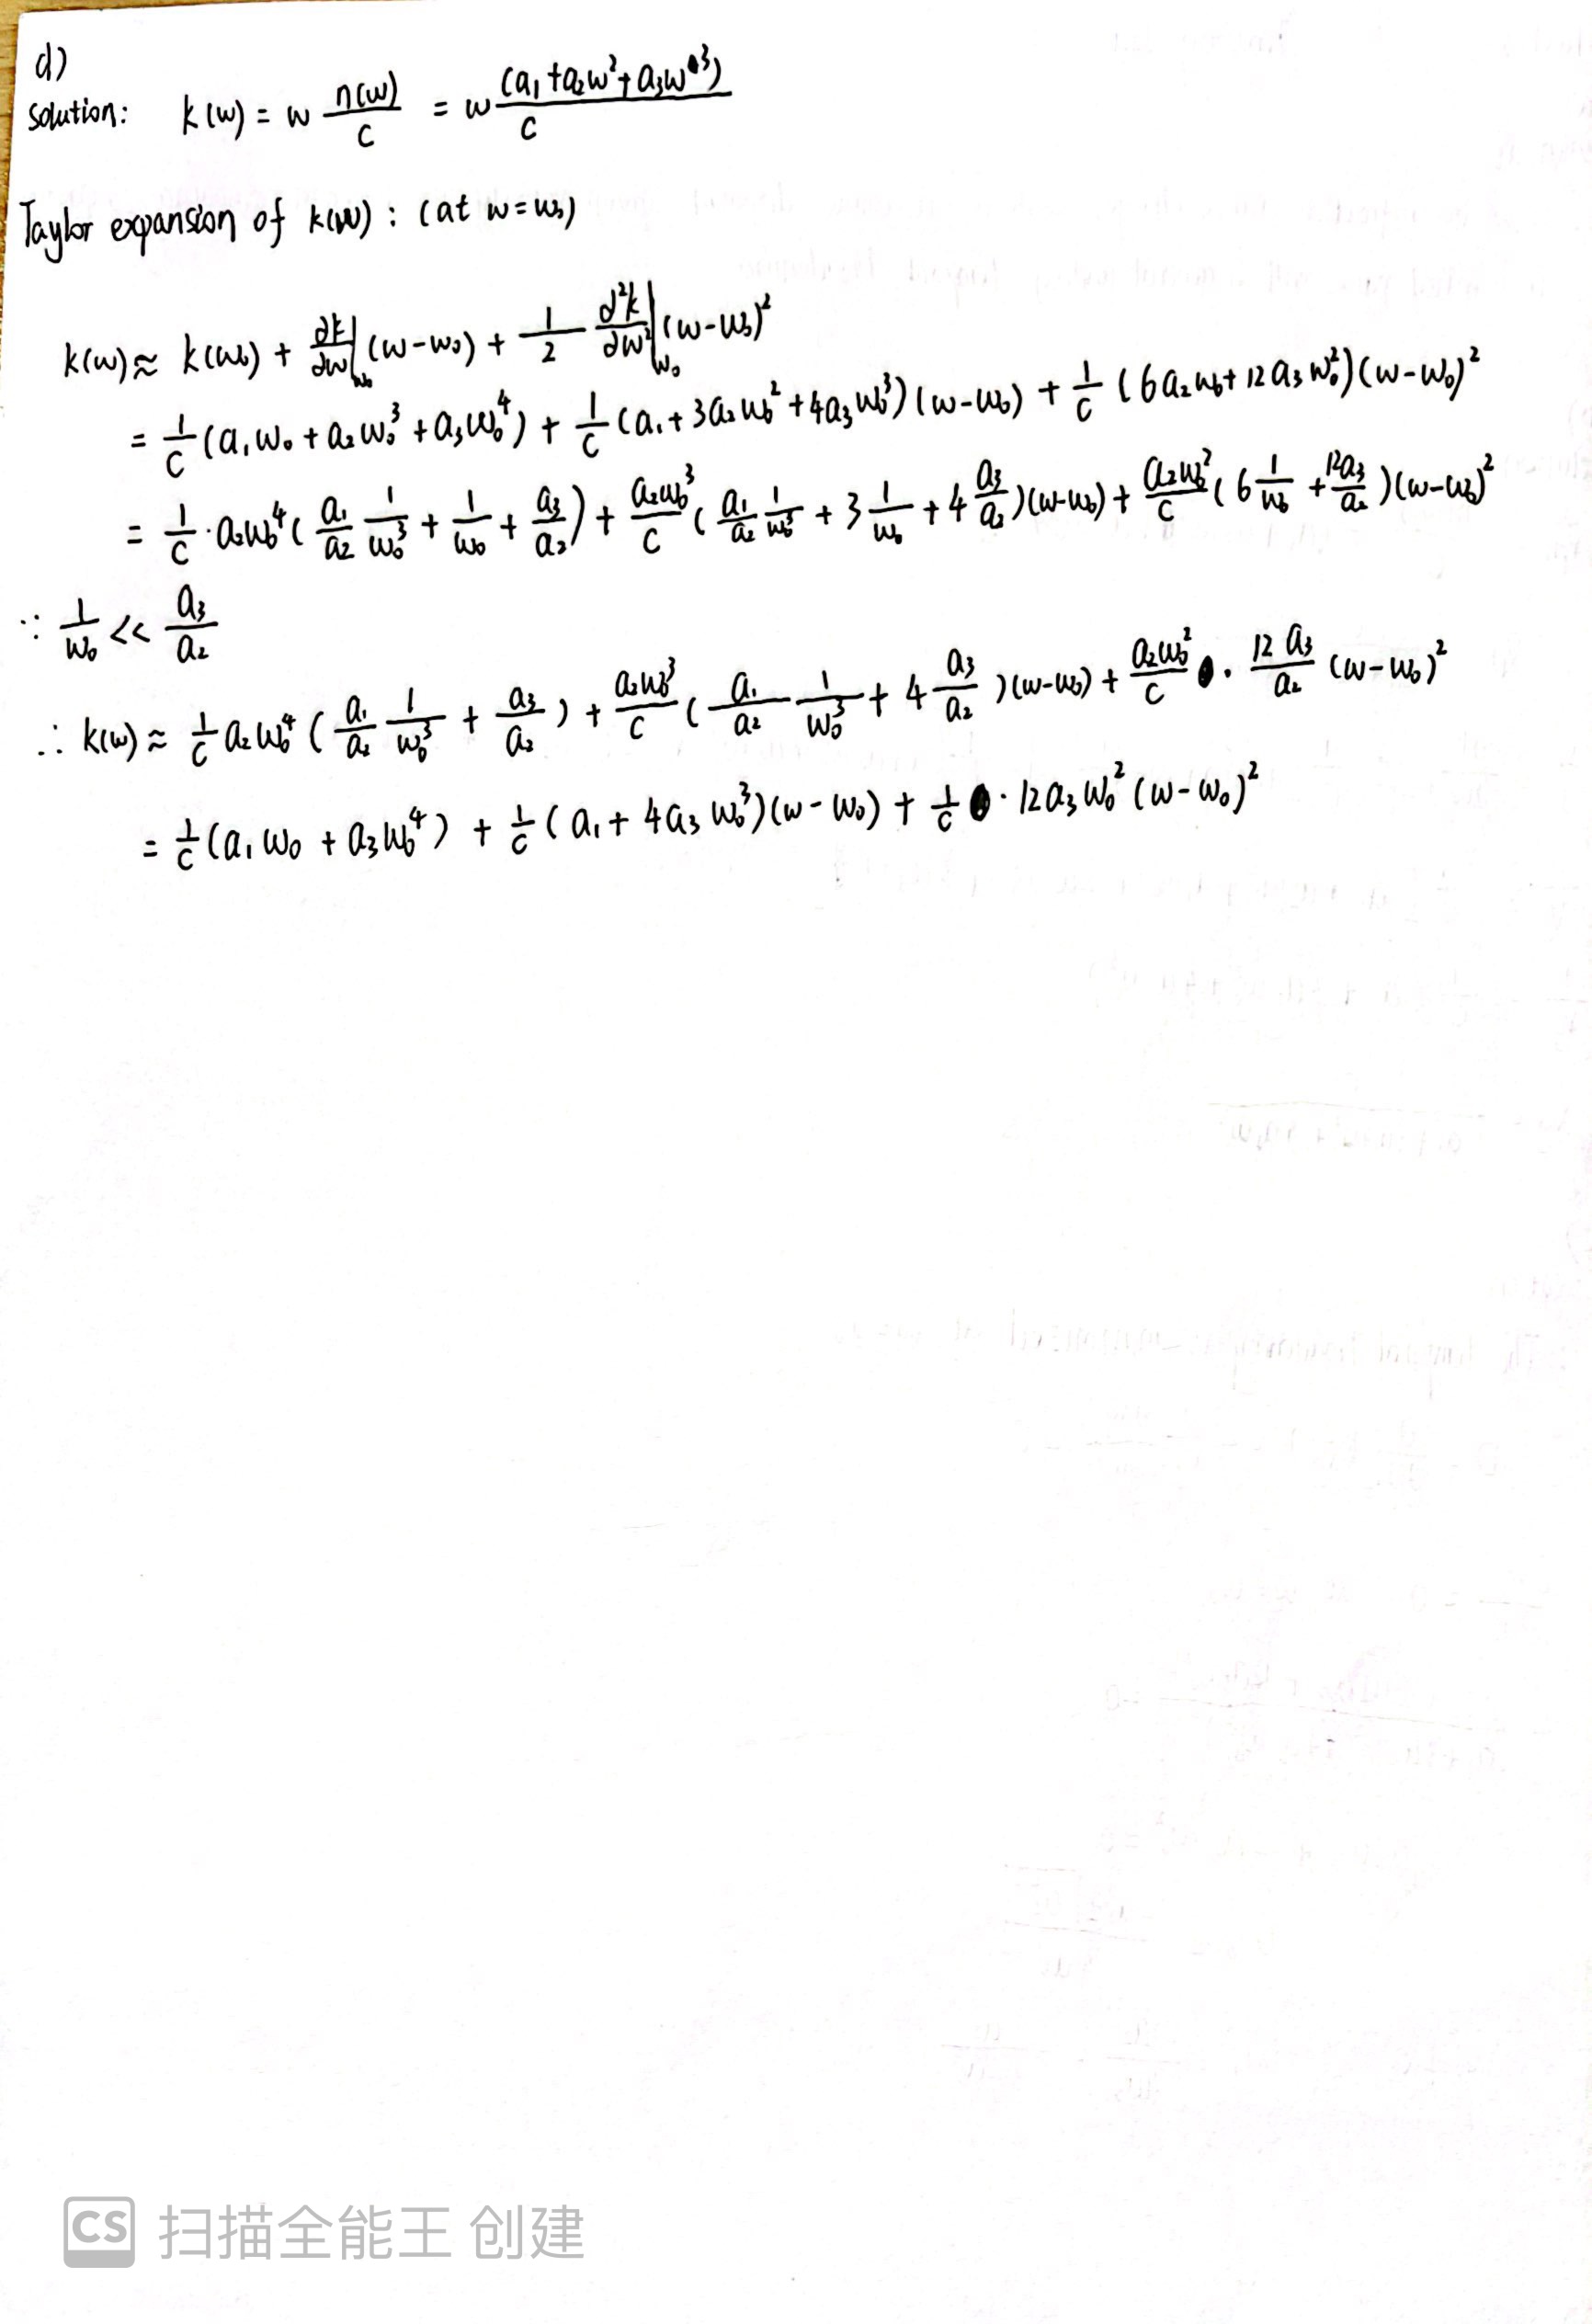 d)
solution: k(w) = w n(w)/c = w (a₁+a₂w²+a₃w³)/c
Taylor expansion of k(w) : (at w=w₀)
k(w) ≈ k(w₀) + ∂k/∂w|w₀ (w-w₀) + 1/2 ∂²k/∂w²|w₀ (w-w₀)²
= 1/c (a₁w₀ + a₂w₀³ + a₃w₀⁴) + 1/c (a₁ + 3a₂w₀² + 4a₃w₀³)(w-w₀) + 1/c (6a₂w₀ + 12a₃w₀²)(w-w₀)²
= 1/c · a₂w₀⁴ (a₁/a₂ 1/w₀³ + 1/w₀ + a₃/a₂) + a₂w₀³/c (a₁/a₂ 1/w₀³ + 3 1/w₀ + 4 a₃/a₂)(w-w₀) + a₂w₀²/c (6 1/w₀ + 12a₃/a₂)(w-w₀)²
∵ 1/w₀ << a₃/a₂
∴ k(w) ≈ 1/c a₂w₀⁴ (a₁/a₂ 1/w₀³ + a₃/a₂) + a₂w₀³/c (a₁/a₂ 1/w₀³ + 4 a₃/a₂)(w-w₀) + a₂w₀²/c · 12a₃/a₂ (w-w₀)²
= 1/c (a₁w₀ + a₃w₀⁴) + 1/c (a₁ + 4a₃w₀³)(w-w₀) + 1/c · 12a₃w₀² (w-w₀)²
CS 扫描全能王 创建